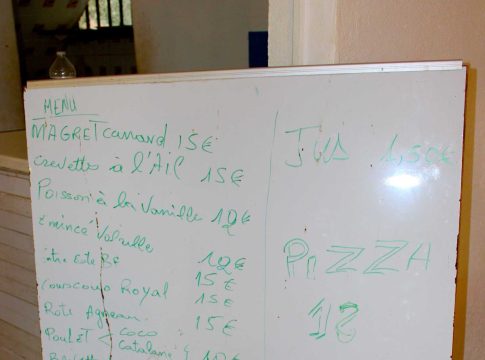 MENU
MAGRET canard 15€
crevettes à l'Ail 15€
Poisson à la Vanille 12€
Emincé Volaille 12€
15€
couscous Royal 15€
Roti Agneau 15€
Poulet < coco
Catalane
JUS 1,50€
PiZZA
12